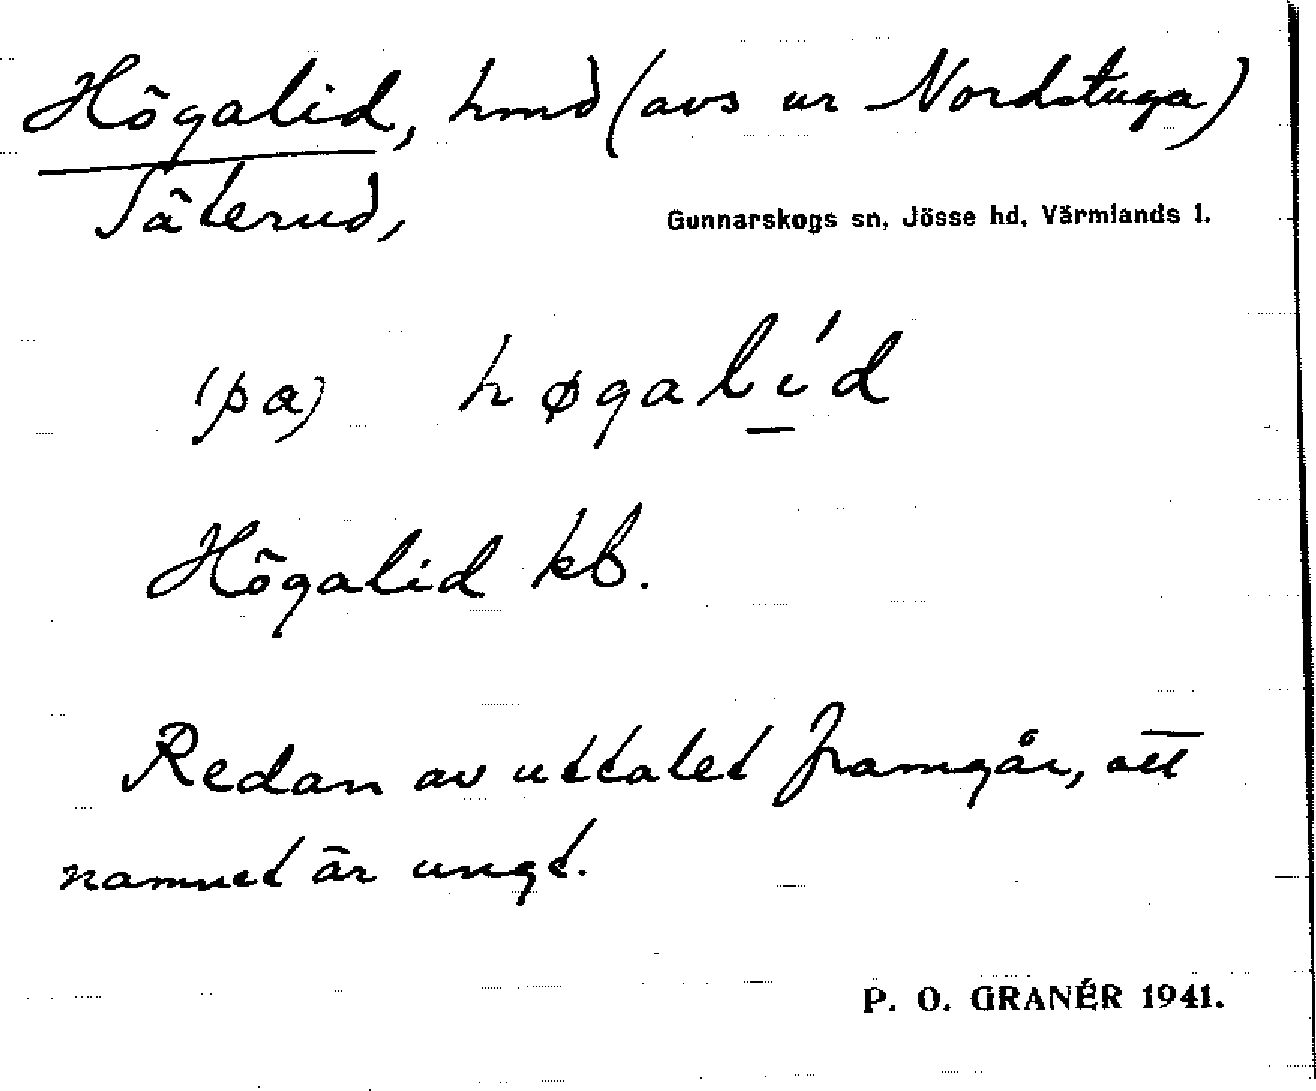 Högalid, hmd (avs ur Nordstuga)
Säterud,
Gunnarskogs sn, Jösse hd, Värmlands l.
(pa) høgalíd
Högalid kb.
Redan av uttalet framgår, att
namnet är ungt.
P. O. GRANÉR 1941.